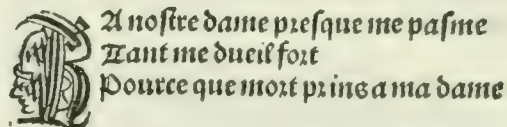 A noſtre dame preſque me paſme
Tant me dueil fort
Pource que mort prins a ma dame